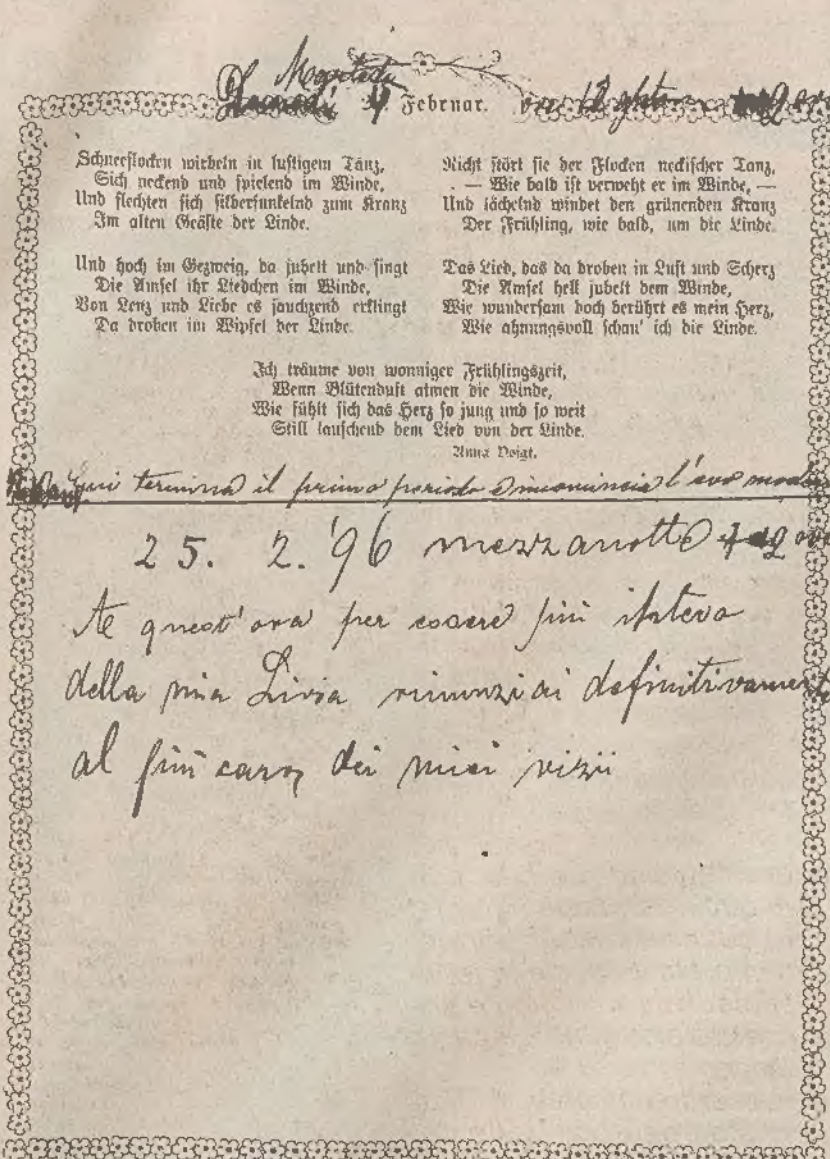 Martedì
Lunedì 4 Februar. ore 12
Schneeflocken wirbeln in lustigem Tanz,
Sich neckend und spielend im Winde,
Und flechten sich silberfunkelnd zum Kranz
Im alten Geäste der Linde.
Und hoch im Gezweig, da jubelt und singt
Die Amsel ihr Liedchen im Winde,
Von Lenz und Liebe es jauchzend erklingt
Da droben im Wipfel der Linde.
Nicht stört sie der Flocken neckischer Tanz,
— Wie bald ist verweht er im Winde, —
Und lächelnd windet den grünenden Kranz
Der Frühling, wie bald, um die Linde.
Das Lied, das da droben in Lust und Scherz
Die Amsel hell jubelt dem Winde,
Wie wundersam doch berührt es mein Herz,
Wie ahnungsvoll schau' ich die Linde.
Ich träume von wonniger Frühlingszeit,
Wenn Blütenduft atmen die Winde,
Wie fühlt sich das Herz so jung und so weit
Still lauschend dem Lied von der Linde.
Anna Voigt.
Qui termina il primo periodo e incomincia l'evo
25. 2. '96 mezzanotte
A quest'ora per essere più
della mia Livia rinunziai definitivamente
al più caro dei miei vizii